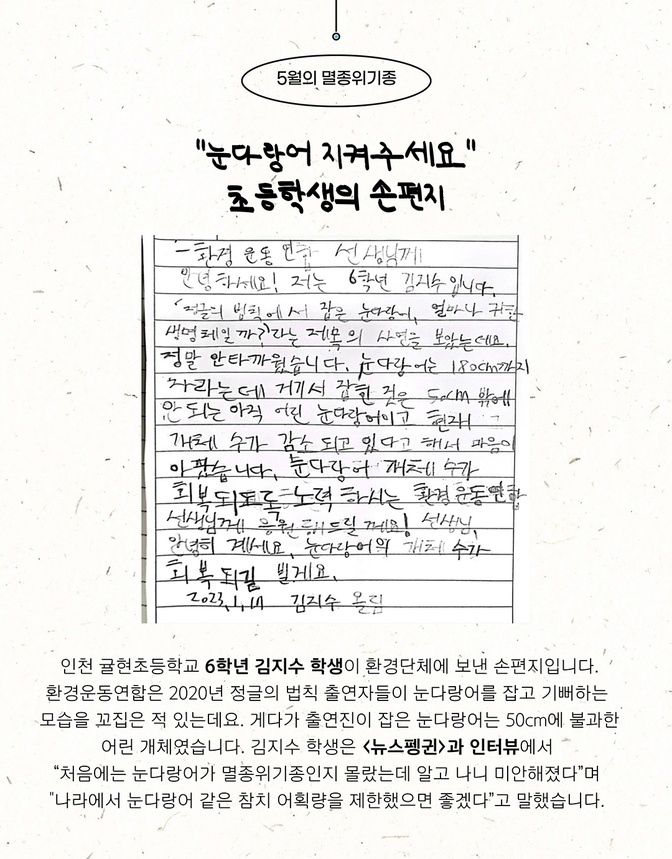 5월의 멸종위기종
"눈다랑어 지켜주세요"
초등학생의 손편지
-환경 운동 연합 선생님께
안녕하세요! 저는 6학년 김지수 입니다.
'정글의 법칙에서 잡은 눈다랑어, 얼마나 귀한
생명체일까?'라는 제목의 사연을 보았는데요.
정말 안타까웠습니다. 눈다랑어는 180cm까지
자라는데 거기서 잡힌 것은 50cm 밖에
안 되는 아직 어린 눈다랑어이고 현재 그
개체 수가 감소 되고 있다고 해서 마음이
아팠습니다. 눈다랑어 개체 수가
회복되도록 노력 하시는 환경운동연합
선생님께 응원 드릴께요! 선생님,
안녕히 계세요. 눈다랑어의 개체 수가
회복 되길 빌게요.
김지수 올림
인천 귤현초등학교 6학년 김지수 학생이 환경단체에 보낸 손편지입니다.
환경운동연합은 2020년 정글의 법칙 출연자들이 눈다랑어를 잡고 기뻐하는
모습을 꼬집은 적 있는데요. 게다가 출연진이 잡은 눈다랑어는 50cm에 불과한
어린 개체였습니다. 김지수 학생은 <뉴스펭귄>과 인터뷰에서
“처음에는 눈다랑어가 멸종위기종인지 몰랐는데 알고 나니 미안해졌다”며
"나라에서 눈다랑어 같은 참치 어획량을 제한했으면 좋겠다”고 말했습니다.